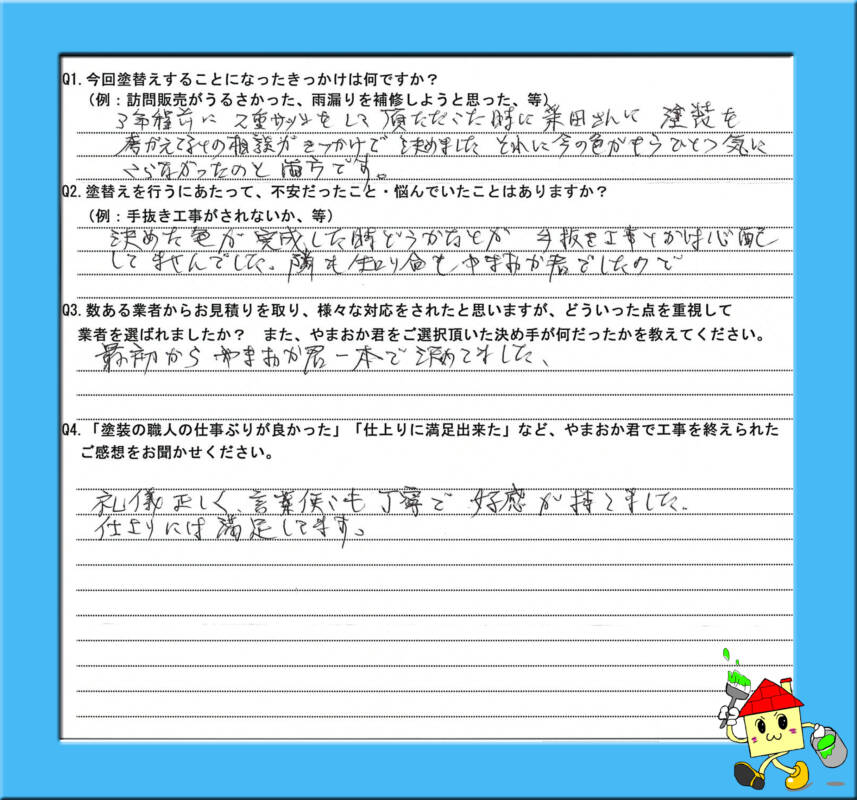 Q1. 今回塗替えすることになったきっかけは何ですか？
（例：訪問販売がうるさかった、雨漏りを補修しようと思った、等）
3年程前に 2重サッシをして頂ただいた時に 栗田さんに 塗装を
考かえてるの相談がきっかけで 決めました それに今の色がもうひとつ気に
いらなかったのと 両方です。
Q2. 塗替えを行うにあたって、不安だったこと・悩んでいたことはありますか？
（例：手抜き工事がされないか、等）
決めた色が 完成した時どうかなとか 手抜き工事とかは心配
してませんでした。隣も 知り合も やまおか君でしたので
Q3. 数ある業者からお見積りを取り、様々な対応をされたと思いますが、どういった点を重視して
業者を選ばれましたか？ また、やまおか君をご選択頂いた決め手が何だったかを教えてください。
最初から やまおか君一本で 決めてました、
Q4. 「塗装の職人の仕事ぶりが良かった」「仕上りに満足出来た」など、やまおか君で工事を終えられた
ご感想をお聞かせください。
礼儀正しく、言葉使いも 丁寧で 好感が持てました。
仕上りには満足してます。